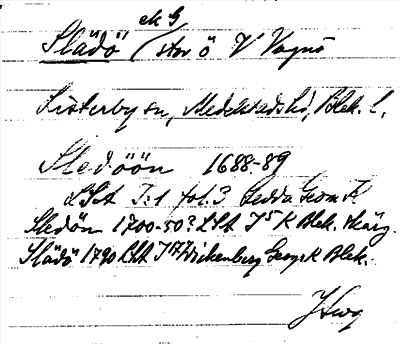 ek G
Slädö / stor ö V Vagnö
Listerby sn, Medelstads hd, Blek. l.
Sledöön 1688-89
LSA I:1 fol. 3 Gedda Geom K
Sledön 1700-50? LSA I 5 K Blek. skärg.
Slädö 1790 LSA I 17 Wickenberg Geogr K Blek.